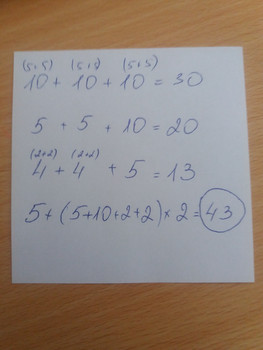 (5+5) (5+5) (5+5)
10 + 10 + 10 = 30
5 + 5 + 10 = 20
(2+2) (2+2)
4 + 4 + 5 = 13
5 + (5+10+2+2) × 2 = 43